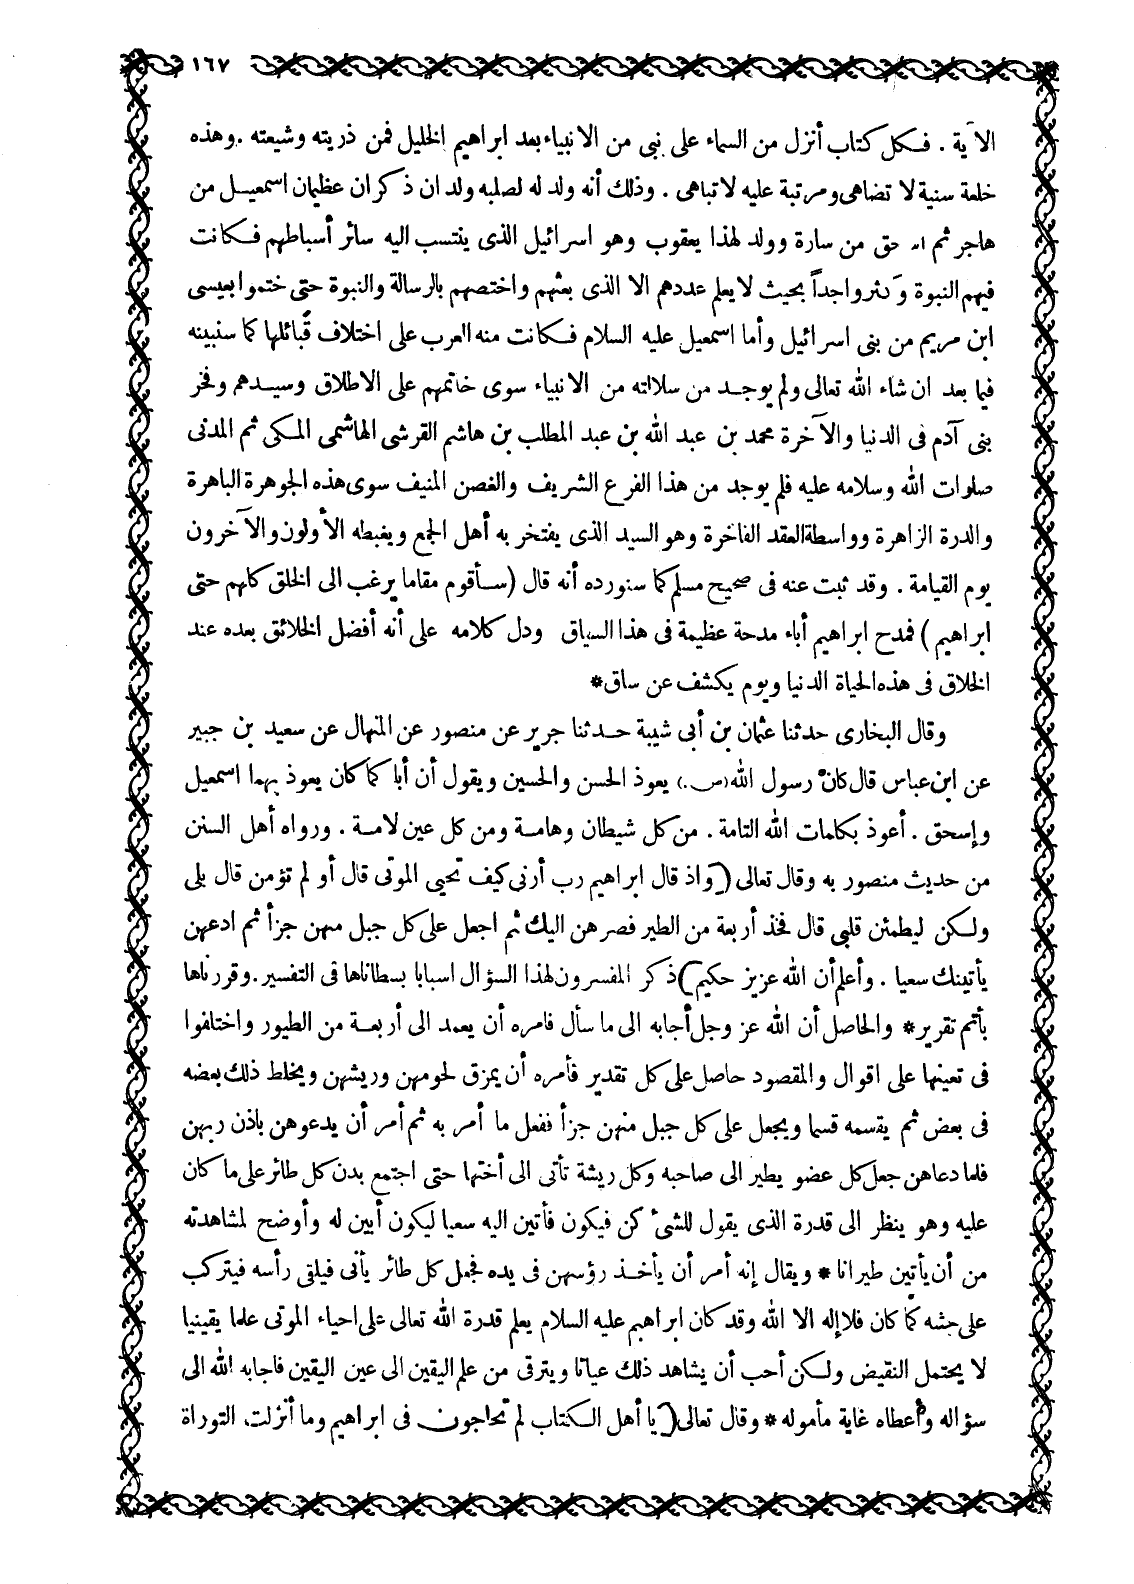 ١٦٧
الآية . فكل كتاب أنزل من السماء على نبى من الانبياء بعد ابراهيم الخليل فمن ذريته وشيعته .وهذه
خلعة سنية لا تضاهى ومرتبة عليه لا تباهى . وذلك أنه ولد له لصلبه ولدان ذكران عظيمان اسمعيل من
هاجر ثم اسحق من سارة وولد لهذا يعقوب وهو اسرائيل الذى ينتسب اليه سائر أسباطهم فكانت
فيهم النبوة وكثرواجداً بحيث لا يعلم عددهم الا الذى بعثهم واختصهم بالرسالة والنبوة حتى ختموا بعيسى
ابن مريم من بنى اسرائيل وأما اسمعيل عليه السلام فكانت منه العرب على اختلاف قبائلها كما سنبينه
فيما بعد ان شاء الله تعالى ولم يوجد من سلالته من الانبياء سوى خاتمهم على الاطلاق وسيدهم وفخر
بنى آدم فى الدنيا والآخرة محمد بن عبد الله بن عبد المطلب بن هاشم القرشى الهاشمى المكى ثم المدنى
صلوات الله وسلامه عليه فلم يوجد من هذا الفرع الشريف والغصن المنيف سوى هذه الجوهرة الباهرة
والدرة الزاهرة وواسطة العقد الفاخرة وهو السيد الذى يفتخر به أهل الجمع ويغبطه الأولون والآخرون
يوم القيامة . وقد ثبت عنه فى صحيح مسلم كما سنورده أنه قال (سأقوم مقاما يرغب الى الخلق كلهم حتى
ابراهيم) فمدح ابراهيم أباه مدحة عظيمة فى هذا السياق ودل كلامه على أنه أفضل الخلائق بعده عند
الخلاق فى هذه الحياة الدنيا ويوم يكشف عن ساق*
وقال البخارى حدثنا عثمان بن أبى شيبة حدثنا جرير عن منصور عن المنهال عن سعيد بن جبير
عن ابن عباس قال كان رسول الله (ص.) يعوذ الحسن والحسين ويقول أن أبا كما كان يعوذ بهما اسمعيل
وإسحق . أعوذ بكلمات الله التامة . من كل شيطان وهامة ومن كل عين لامة . ورواه أهل السنن
من حديث منصور به وقال تعالى (واذ قال ابراهيم رب أرنى كيف تحيى الموتى قال أو لم تؤمن قال بلى
ولكن ليطمئن قلبى قال فخذ أربعة من الطير فصرهن اليك ثم اجعل على كل جبل منهن جزأ ثم ادعهن
يأتينك سعيا . وأعلم أن الله عزيز حكيم) ذكر المفسرون لهذا السؤال اسبابا بسطاناها فى التفسير .وقررناها
بأتم تقرير* والحاصل أن الله عز وجل أجابه الى ما سأل فامره أن يعمد الى أربعة من الطيور واختلفوا
فى تعينها على اقوال والمقصود حاصل على كل تقدير فأمره أن يمزق لحومهن وريشهن ويخلط ذلك بعضه
فى بعض ثم يقسمه قسما ويجعل على كل جبل منهن جزأ ففعل ما أمر به ثم أمر أن يدعوهن باذن ربهن
فلما دعاهن جعل كل عضو يطير الى صاحبه وكل ريشة تأتى الى أختها حتى اجتمع بدن كل طائر على ما كان
عليه وهو ينظر الى قدرة الذى يقول للشئ كن فيكون فأتين اليه سعيا ليكون أبين له وأوضح لمشاهدته
من أن يأتين طيرانا* ويقال إنه أمر أن يأخذ رؤسهن فى يده فجعل كل طائر يأتى فيلقى رأسه فيتركب
على جثته كما كان فلا إله الا الله وقد كان ابراهيم عليه السلام يعلم قدرة الله تعالى على احياء الموتى علما يقينيا
لا يحتمل النقيض ولكن أحب أن يشاهد ذلك عيانا ويترقى من علم اليقين الى عين اليقين فاجابه الله الى
سؤاله وأعطاه غاية مأموله* وقال تعالى (يا أهل الكتاب لم تحاجون فى ابراهيم وما أنزلت التوراة